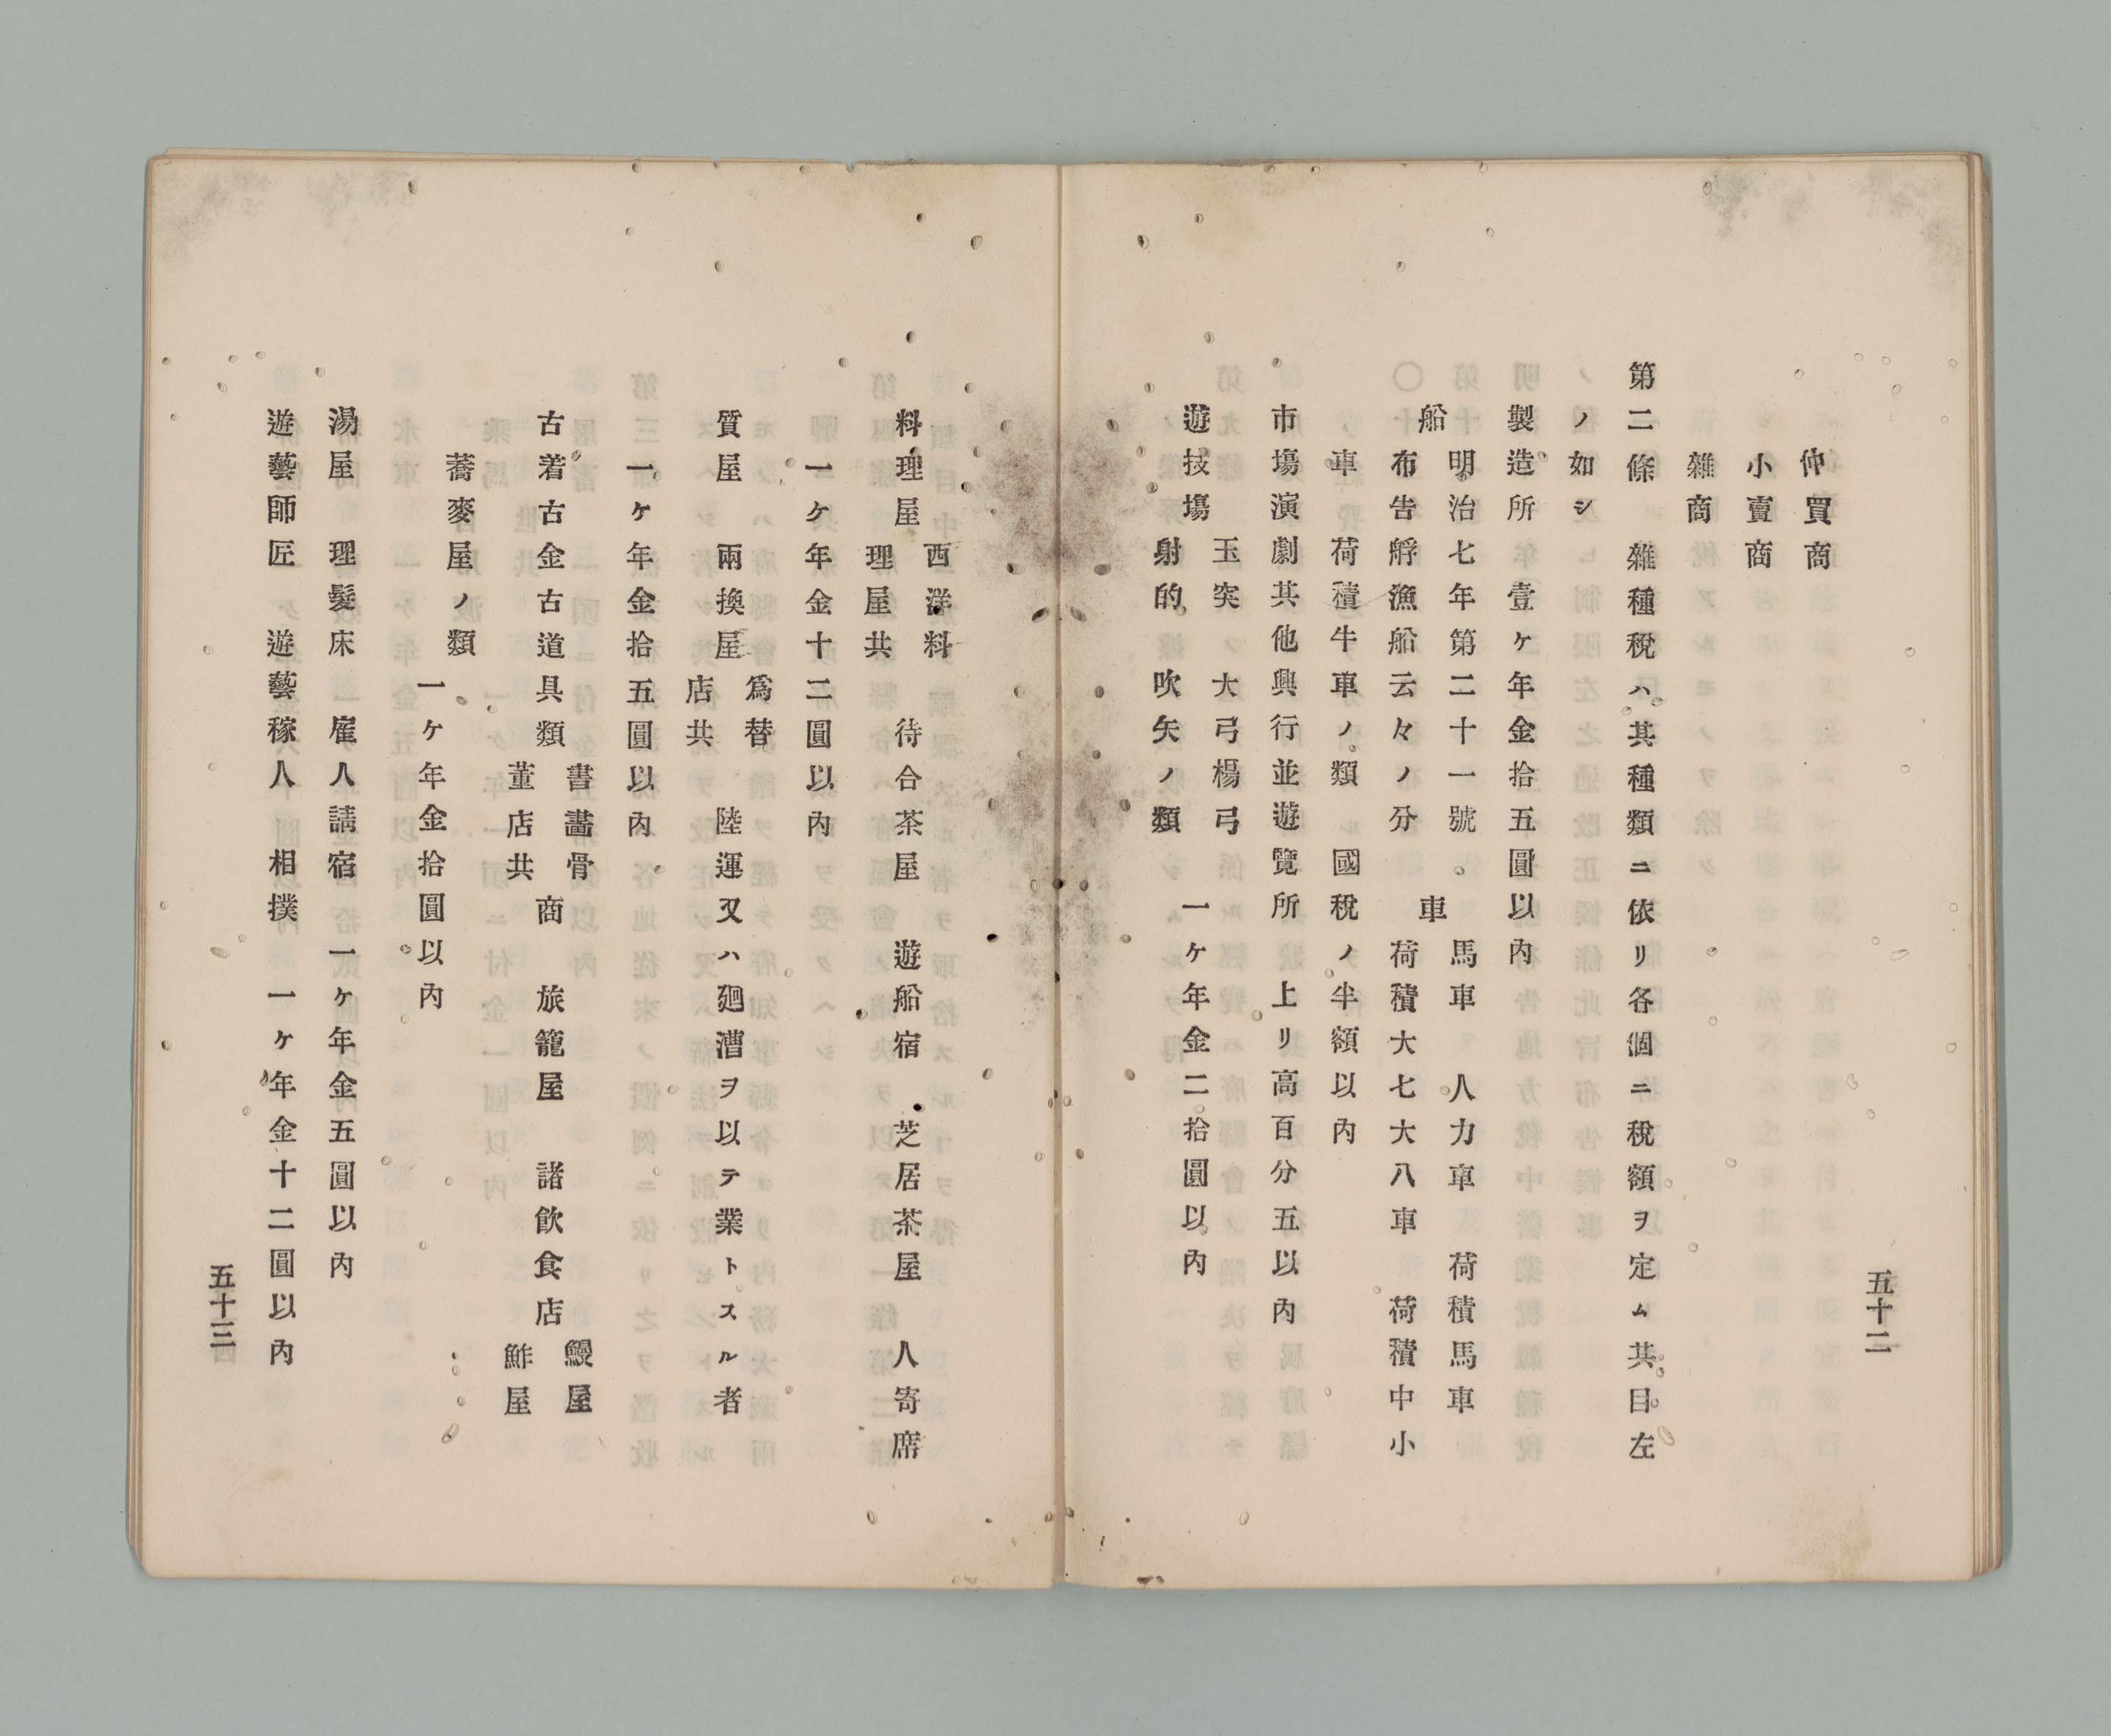 仲買商
小賣商
雜商
第二條　雜種税ハ其種類ニ依リ各個ニ税額ヲ定ム其目左
ノ如シ
製造所　壹ヶ年金拾五圓以内
船　明治七年第二十一號　布告艀漁船云々ノ分　車　馬車　人力車　荷積馬車　荷積大七大八車　荷積中小
車　荷積牛車ノ類　國税ノ半額以内
市場演劇其他興行並遊覽所　上リ高百分五以内
遊技塲　玉突　大弓楊弓　射的　吹矢ノ類　一ヶ年金二拾圓以内
五十二
料理屋　西洋料理屋共　待合茶屋　遊船宿　芝居茶屋　人寄席
一ヶ年金十二圓以内
質屋　兩換屋　爲替店共　陸運又ハ廻漕ヲ以テ業トスル者
一ヶ年金拾五圓以内
古着古金古道具類　書畵骨董店共　商　旅籠屋　諸飮食店　鰻屋　鮓屋
蕎麥屋ノ類　一ヶ年金拾圓以内
湯屋　理髮床　雇人請宿　一ヶ年金五圓以内
遊藝師匠　遊藝稼人　相撲　一ヶ年金十二圓以内
五十三